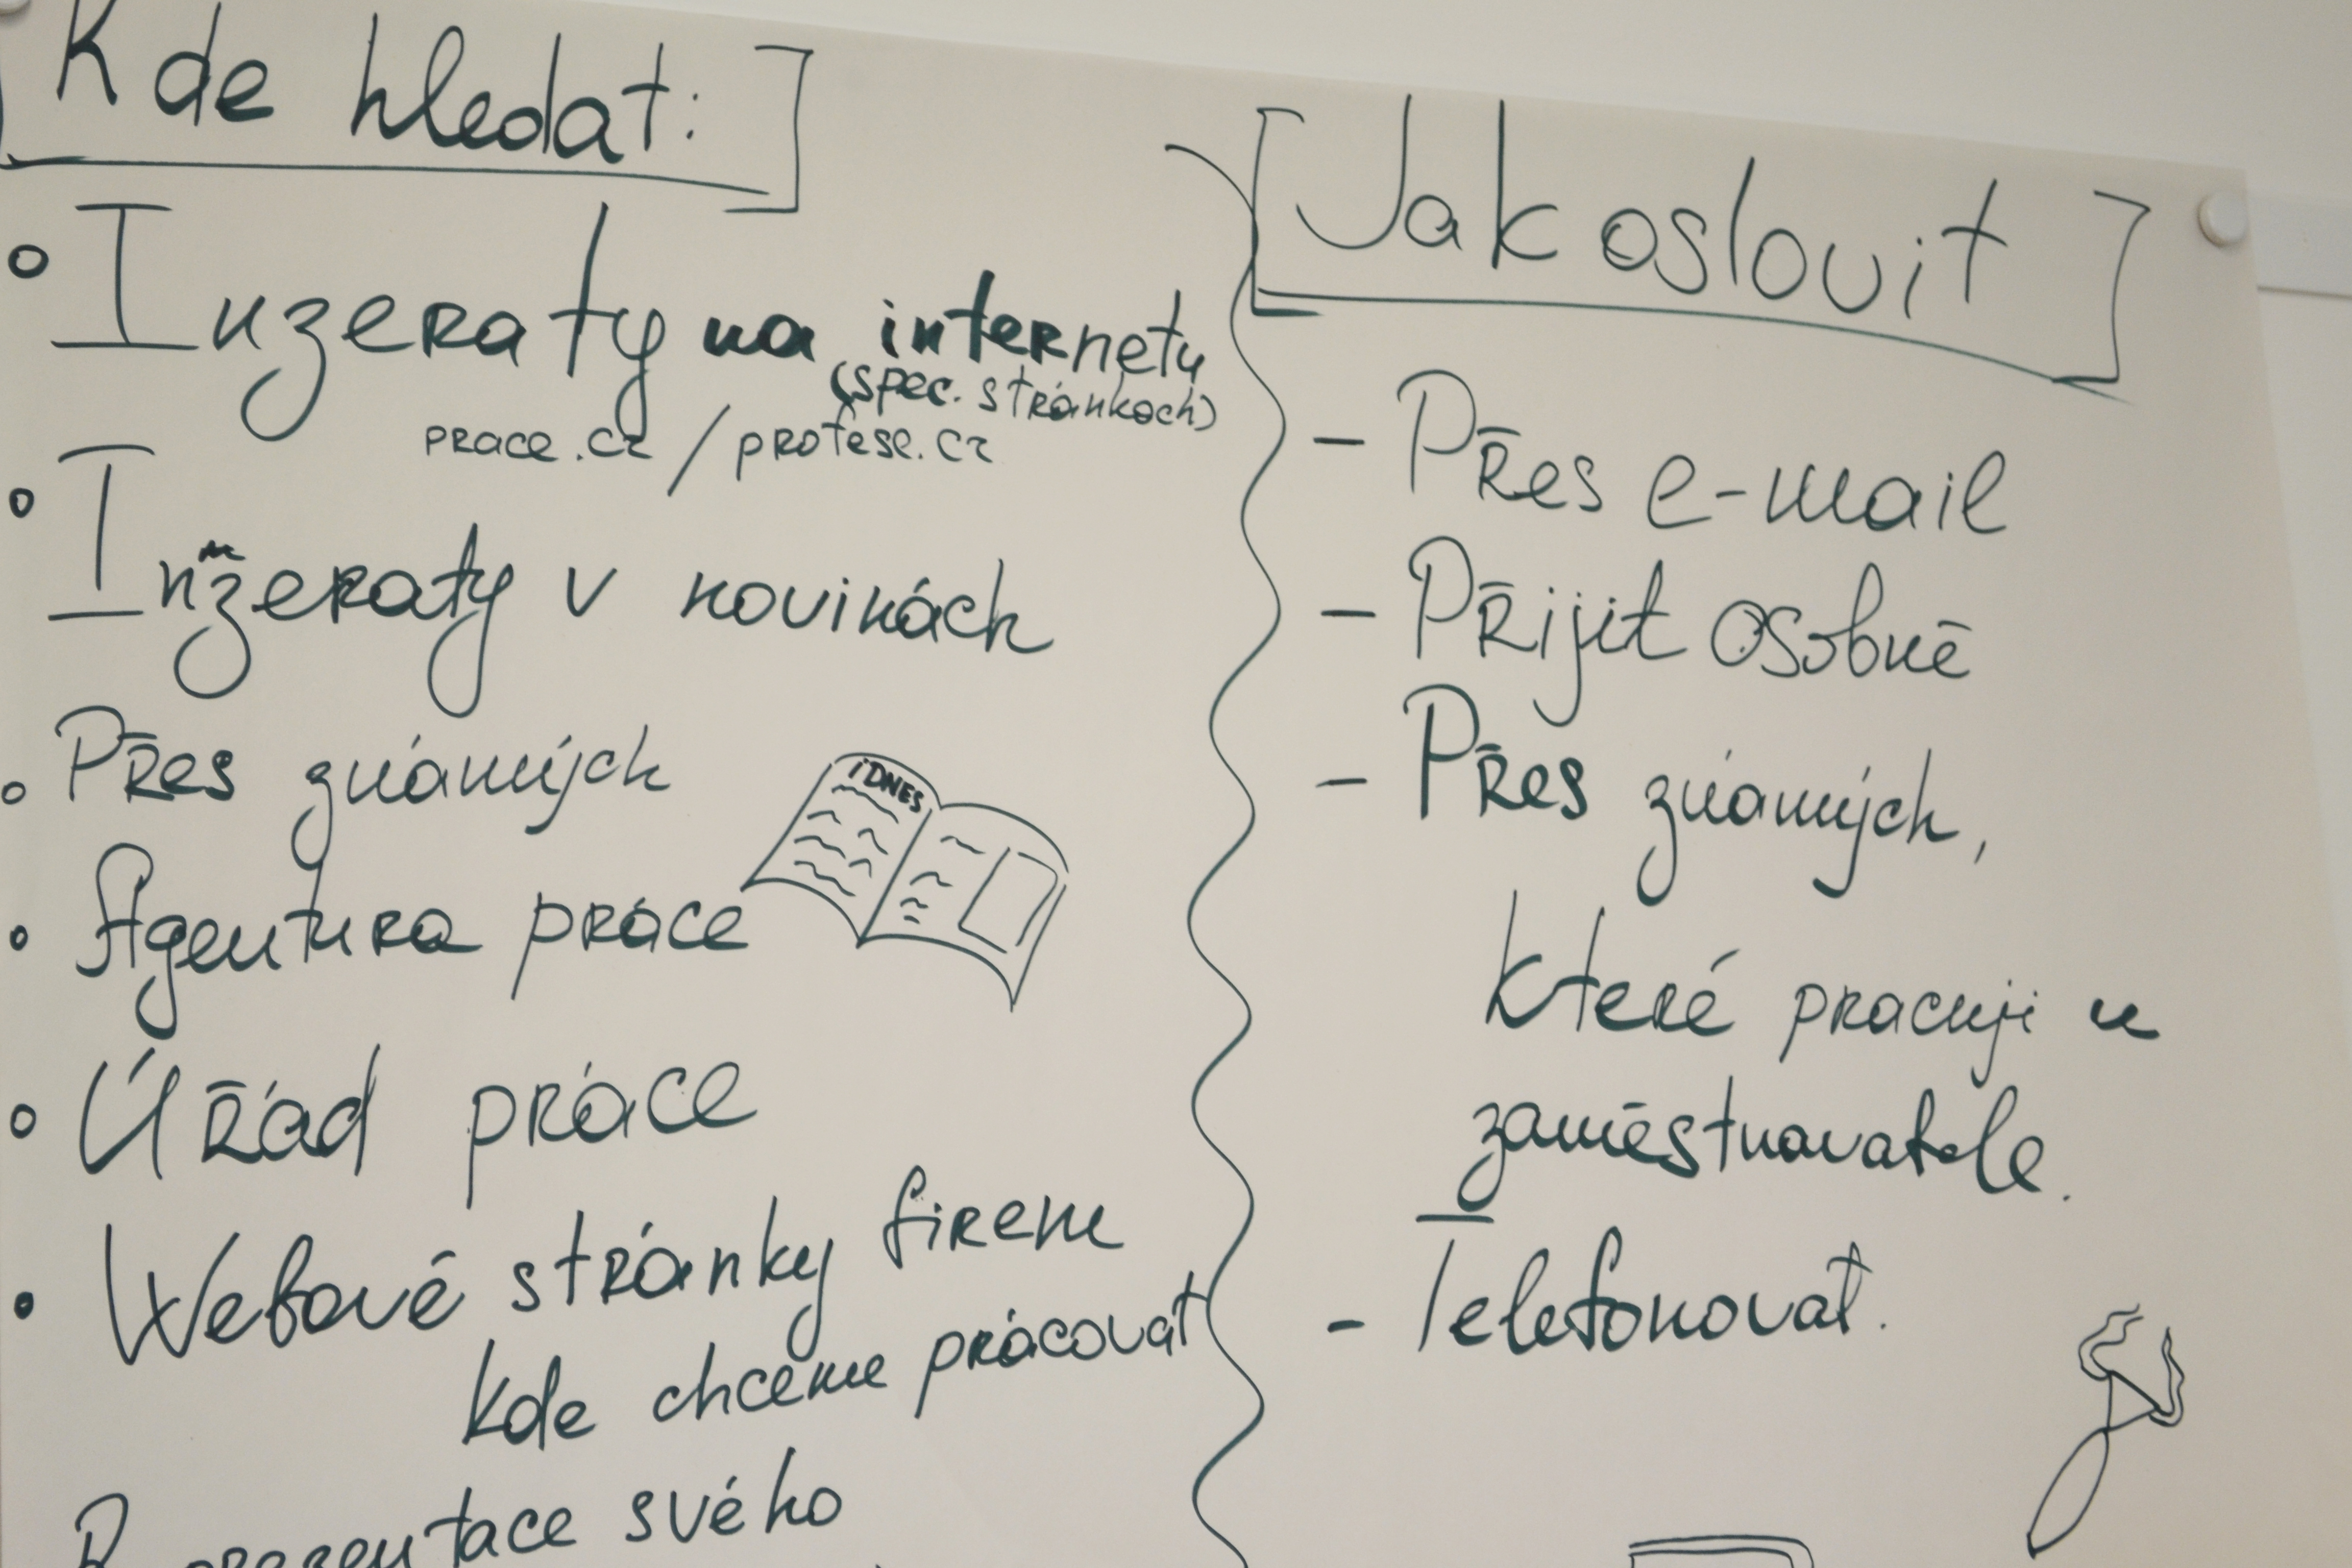 Kde hledat:
Inzeraty na internetu
(spec. stránkách)
prace.cz / profese.cz
Inžeraty v novinách
Přes známých
iDNES
Agentura práce
Úřad práce
Webové stránky firem
kde chceme prácovat
svého
Jak oslovit
- Přes e-mail
- Přijit osobně
- Přes známých,
které pracuji u
zaměstnavatele.
- Telefonovat.